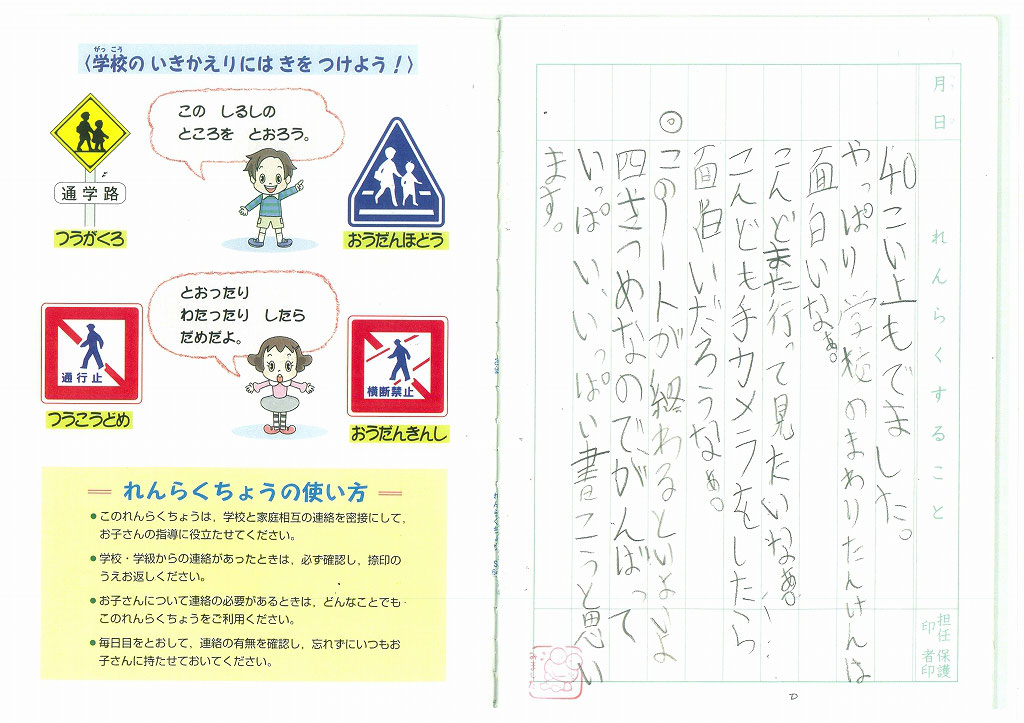 〈学校の いきかえりには きを つけよう!〉
がっ こう
この しるしの
ところを とおろう。
通学路
つうがくろ
おうだんほどう
とおったり
わたったり したら
だめだよ。
通行止
つうこうどめ
横断禁止
おうだんきんし
れんらくちょうの使い方
●このれんらくちょうは,学校と家庭相互の連絡を密接にして,
お子さんの指導に役立たせてください。
●学校・学級からの連絡があったときは,必ず確認し,捺印の
うえお返しください。
●お子さんについて連絡の必要があるときは,どんなことでも
このれんらくちょうをご利用ください。
●毎日目をとおして,連絡の有無を確認し,忘れずにいつもお
子さんに持たせておいてください。
月 日
れんらくすること
担任印
保護者印
40こい上もでました。
やっぱり学校のまわりたんけんは
面白いなぁ。
こんどまた行って見たいなぁ。…
こんども手カメラをしたら
面白いだろうなぁ。
◎このノートが終わるといよいよ
四さつめなのでがんばって
いっぱい、いっぱい書こうと思い
ます。